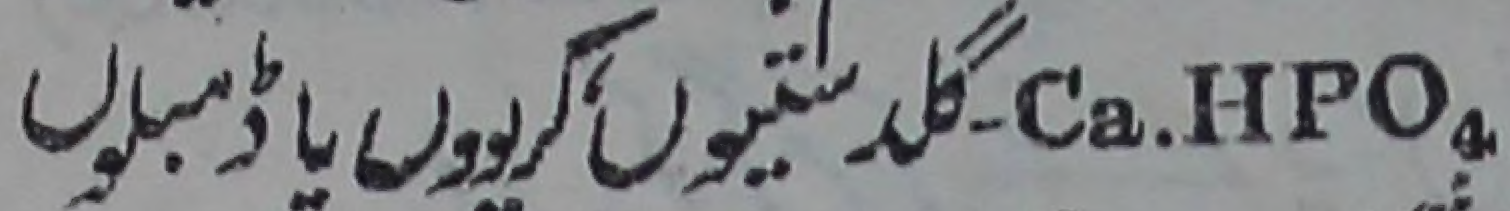 Ca.HPO₄-گلدستیوں، کریووں یا ڈمبلوں